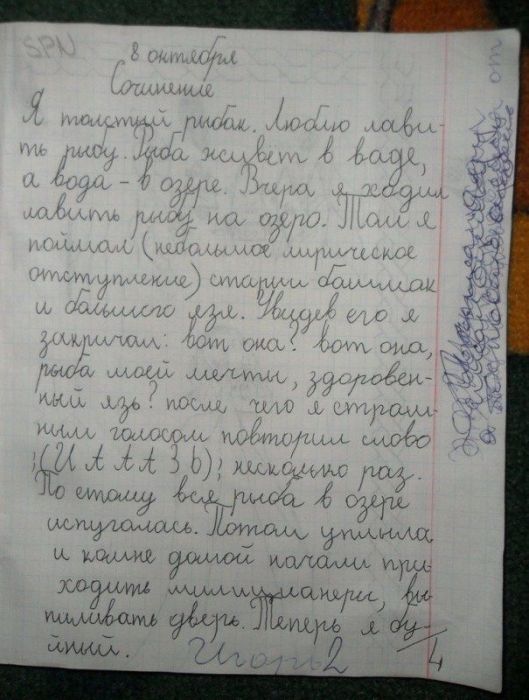 SPN
8 октября
Сочинение
Я толстый рыбак. Люблю лави-
ть рыбу. Рыба живет в ваде,
а вода - в озере. Вчера я ходил
лавить рыбу на озеро. Там я
поймал (небольшое лирическое
отступление) старии башмак
и большого язя. Увидев его я
закричал: вот она? вот она,
рыба моей мечты, здоровен-
ный язь? после чего я страш-
ным голосом повторил слово
;(И А А А З Ь); несколько раз.
По етому вся рыба в озере
испугалась. Потом уплыла
и комне домой начали при
ходить милиционеры, вы
пиливать дверь. Теперь я бу-
йный. Игорь 2
4
от